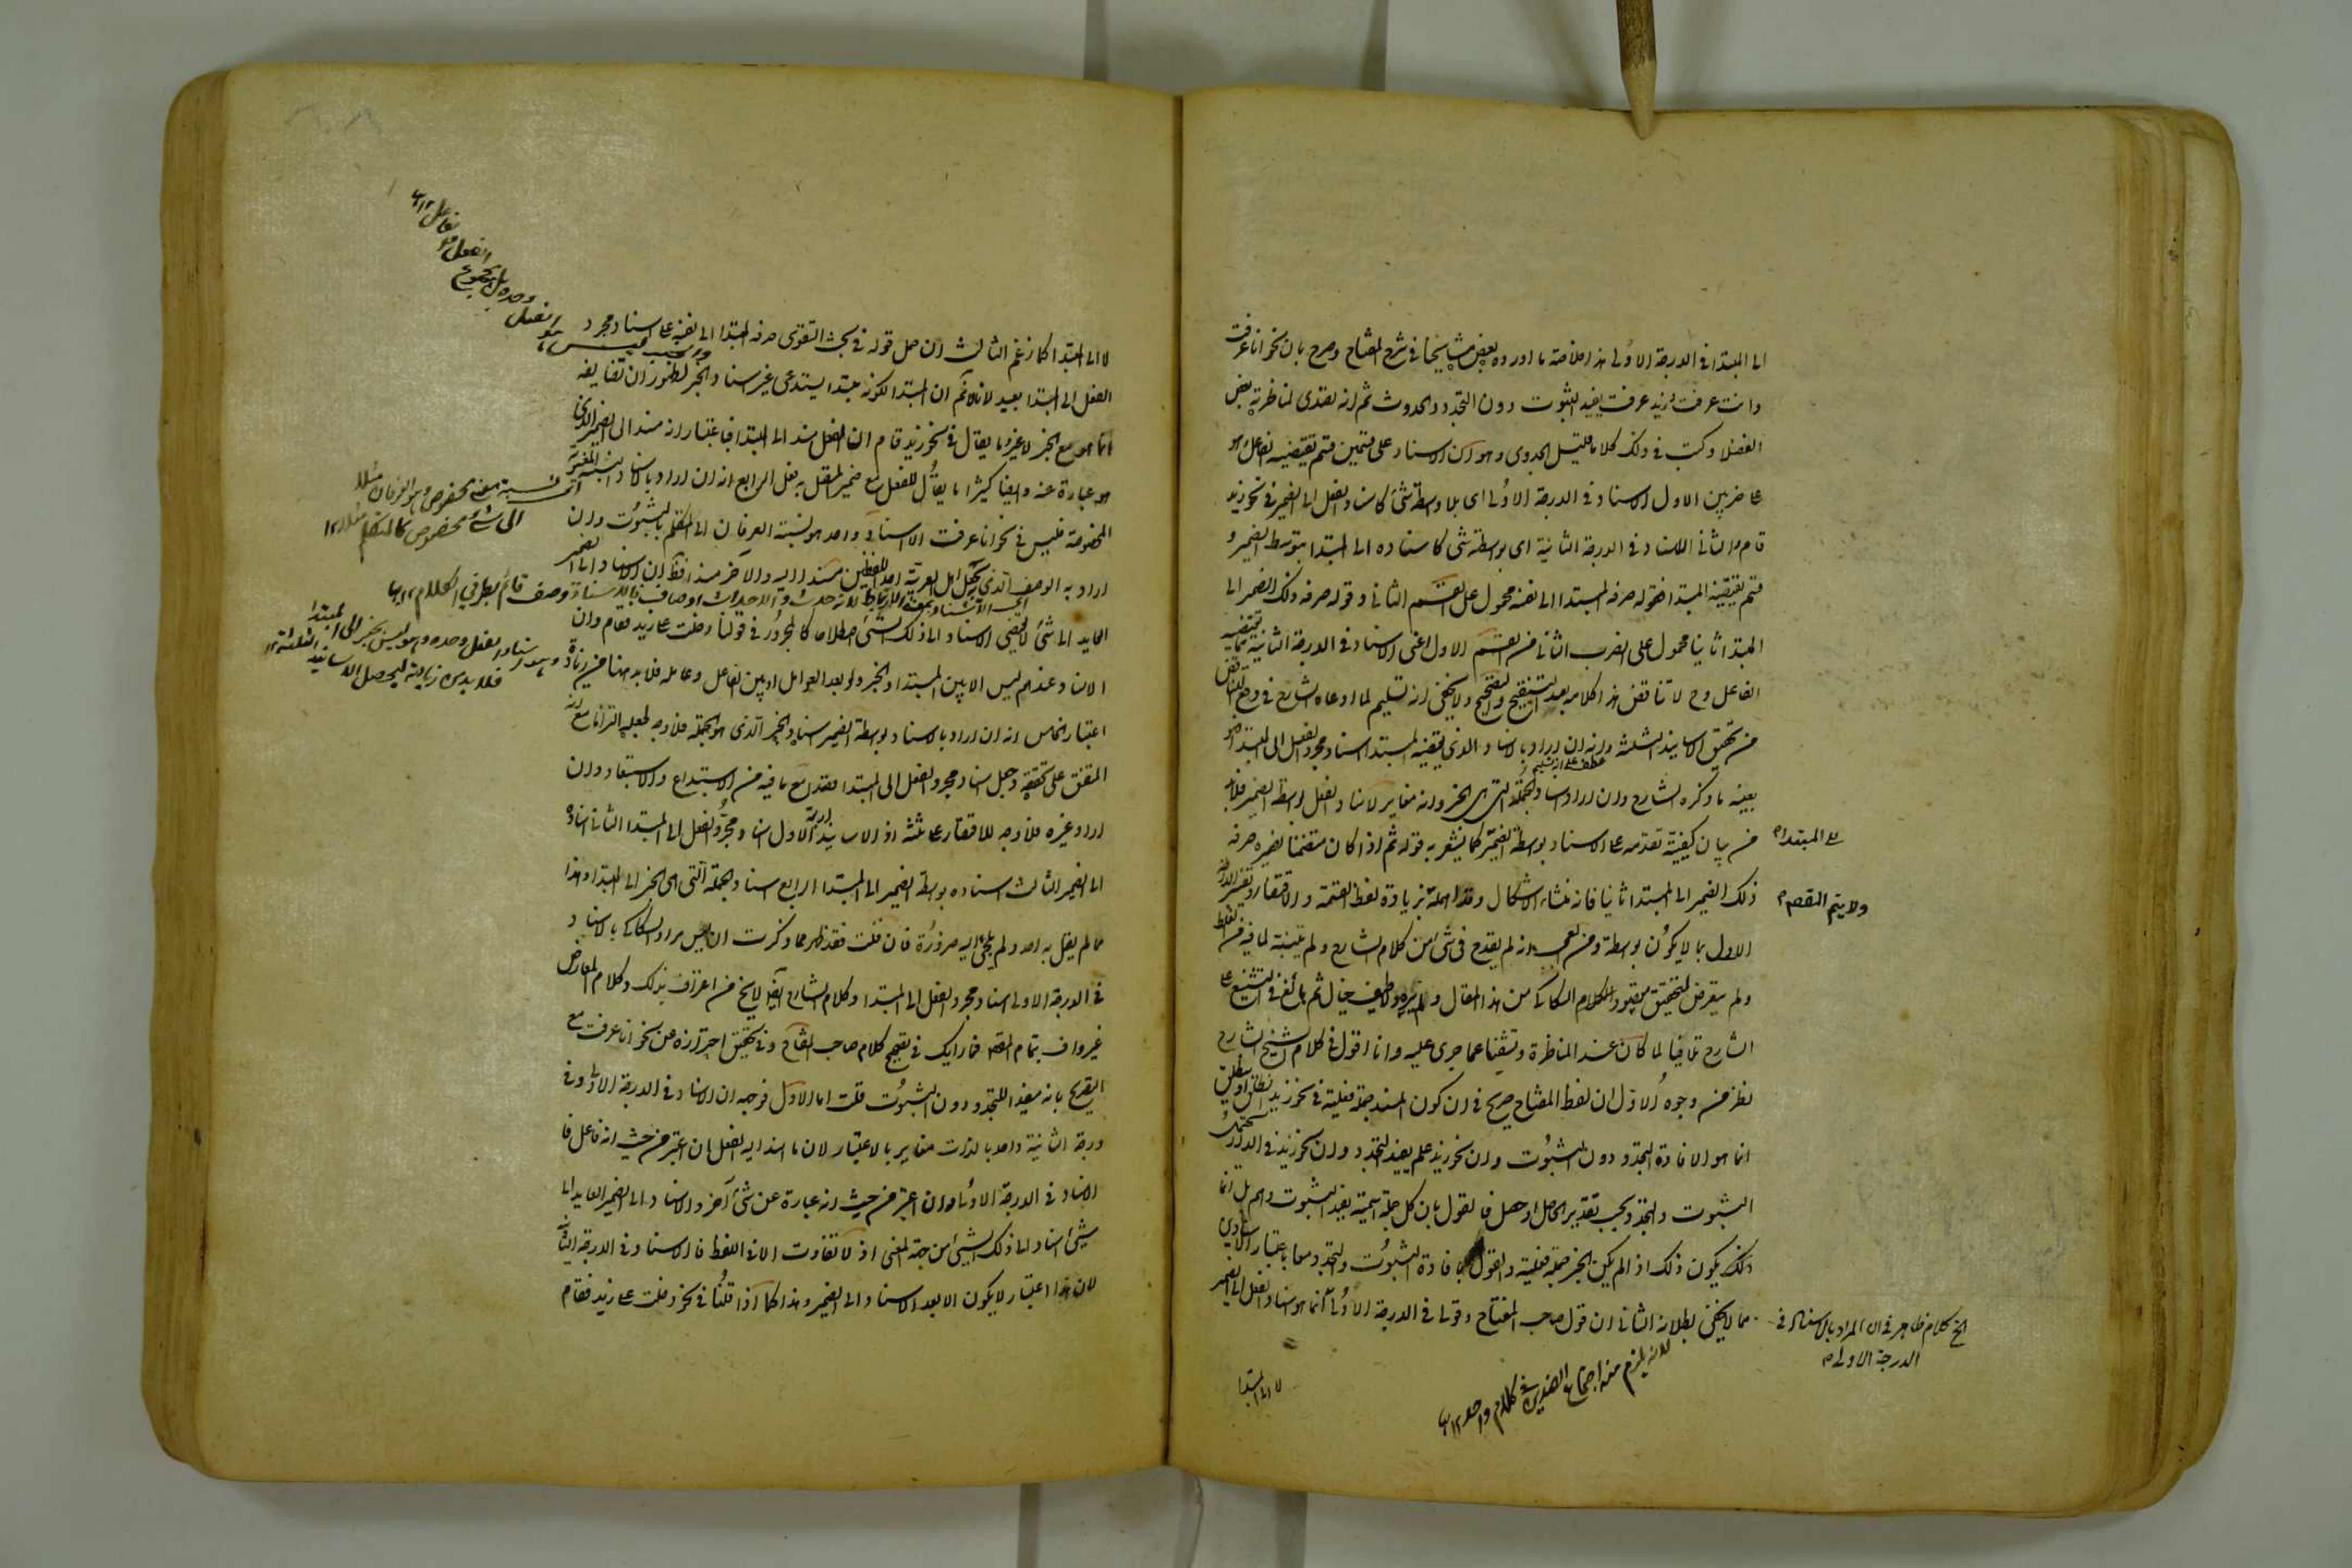 الى المبتدا في الدرجة الاولى هذا خلاصة ما اورده بعض مشايخنا في شرح المفتاح وصرح بان نحو انا عرفت
وانت عرفت وزيد عرف يفيد الثبوت دون التجدد والحدوث ثم انه تصدى لمناظرته بعض
الفضلا وكتب في ذلك كلاما قليل الجدوى وهو ان الاسناد على قسمين قسم يقتضيه الفاعل وهو
على ضربين الاول الاسناد في الدرجة الاولى اى بلا واسطة شئ كاسناد الفعل الى الضمير في نحو زيد
قام والثاني الاسناد في الدرجة الثانية اى بواسطة شئ كاسناده الى المبتدا بتوسط الضمير و
قسم يقتضيه المبتدا فقوله صرفه المبتدا الى نفسه محمول على القسم الثاني وقوله صرفه ذلك الضمير الى
المبتدا ثانيا محمول على الضرب الثاني من القسم الاول اعنى الاسناد في الدرجة الثانية مما يقتضيه
الفاعل وح لا تناقض هذا كلامه بعد التنقيح والتصحيح ولا يخفى انه تسليم لما ادعاه الشارح في دفع التناقض
من تحقق الاسانيد الثلثة وانه ان اراد بالاسناد الذي يقتضيه المبتدا اسناد مجرد الفعل الى المبتدا فهو
عطف على انه تسليم
بعينه ما ذكره الشارح وان اراد اسناد الجملة التي هى الخبر وانه مغاير لاسناد الفعل بواسطة الضمير فلابد
من بيان كيفية تقدمه على الاسناد بواسطة الضمير كما يشعر به قوله ثم اذا كان متضمنا لضميره صرفه
على المبتدا
ذلك الضمير الى المبتدا ثانيا فانه منشاء الاشكال
ولا يتم التقصي
الاول بما لا يكون بواسطة ومن العجب انه لم يقدح في شئ من كلام الشارح ولم يتنبه لما فيه من
ولم يتعرض لتحقيق مقصود الكلام السكاكى من هذا المقال ثم بالغ في التشنيع على
الشارح تلافيا لما كان عند المناظرة وتشفيا عما جرى عليه وانا اقول في كلام الشيخ الشارح
نظر من وجوه الاول ان لفظ المفتاح صريح في ان كون المسند جملة فعلية في نحو زيد انطلق او ينطلق
انما هو لافادة التجدد دون الثبوت وان نحو زيد علم يفيد التجدد وان نحو زيد في الدار يحتمل
الثبوت والتجدد بحسب تقدير حاصل او حصل فالقول بان كل جملة اسمية يفيد الثبوت وهم بل انما
يكون ذلك اذا لم يكن الخبر جملة فعلية والقول بافادة الثبوت والتجدد معا باعتبار اسنادين
مما لا يخفى بطلانه الثاني ان قول صاحب المفتاح وقولنا في الدرجة الاولى انما هو اسناد الفعل الى الضمير
الخ كلام ظاهر في ان المراد بالاسناد في
الدرجة الاولى
لانه يلزم منه اجتماع الضدين في كلام واحد ١٢
لا الى المبتدا
لا الى المبتدا كما زعم الثالث ان حمل قوله في بحث التقوى صرفه المبتدا الى نفسه على اسناد مجرد
الفعل الى المبتدا بعيد لانا لا نم ان المبتدا لكونه مبتدا يستدعى غير اسناد الخبر لظهور ان تضايفه
انما هو مع الخبر لا غير وما يقال في نحو زيد قام ان الفعل مسند الى المبتدا فباعتبار انه مسند الى الضمير الذي
هو عبارة عنه وايضا كثيرا ما يقال للفعل مع ضميره المتصل به فعل الرابع انه ان اراد بالاسناد النسبة المعنوية
المخصوصة فليس في نحو انا عرفت الا اسناد واحد هو نسبة العرفان الى المتكلم بالثبوت وان
اراد به الوصف الذي يجعل اهل العربية احد اللفظين مسندا اليه والاخر مسندا فظ ان الاسناد الى الضمير
العايد الى شئ لا يقتضى الاسناد الى ذلك الشئ اصطلاحا كالمجرور في قولنا دخلت على زيد فقام وان
الاسناد عندهم ليس الا بين المبتدا والخبر او بعد العوامل او بين الفاعل وعامله فلابد هنا من زيادة
اعتبار الخامس انه ان اراد بالاسناد بواسطة الضمير اسناد الخبر الذي هو الجملة فلا وجه لجعله التزاما مع انه
المتفق على تحققه وجعل اسناد مجرد الفعل الى المبتدا مقصدا مع ما فيه من الابتداع والاستبعاد وان
اراد غيره فلا وجه للاقتصار على ثلثة اذ الاسانيد اربعة الاول اسناد مجرد الفعل الى المبتدا الثاني اسناده
الى الضمير الثالث اسناده بواسطة الضمير الى المبتدا الرابع اسناد الجملة التي هى الخبر الى المبتدا وهذا
مما لم يقل به احد ولم يلجئ اليه ضرورة فان قلت فقد ظهر مما ذكرت ان ليس مراد السكاكى بالاسناد
في الدرجة الاولى اسناد مجرد الفعل الى المبتدا وكلام الشارح ايضا لا يخ من اعتراف بذلك وكلام المعارض
غير واف بتمام المقصود فما رايك في تصحيح كلام صاحب المفتاح وفي تحقيق احترازه عن نحو انا عرفت مع
التصريح بانه مفيد للتجدد دون الثبوت قلت اما الاول فوجهه ان الاسناد في الدرجة الاولى وفي
درجة الثانية واحد بالذات مغاير بالاعتبار لان ما اسند اليه الفعل ان اعتبر من حيث انه فاعل فا
لاسناد في الدرجة الاولى وان اعتبر من حيث انه عبارة عن شئ آخر والاسناد الى الضمير العايد الى
شئ اسناد الى ذلك الشئ من جهة المعنى اذ لا تفاوت الا في اللفظ فالاسناد في الدرجة الثانية
لان هذا اعتبار لا يكون الا بعد الاسناد الى الضمير وهذا كما اذا قلنا في نحو دخلت على زيد فقام